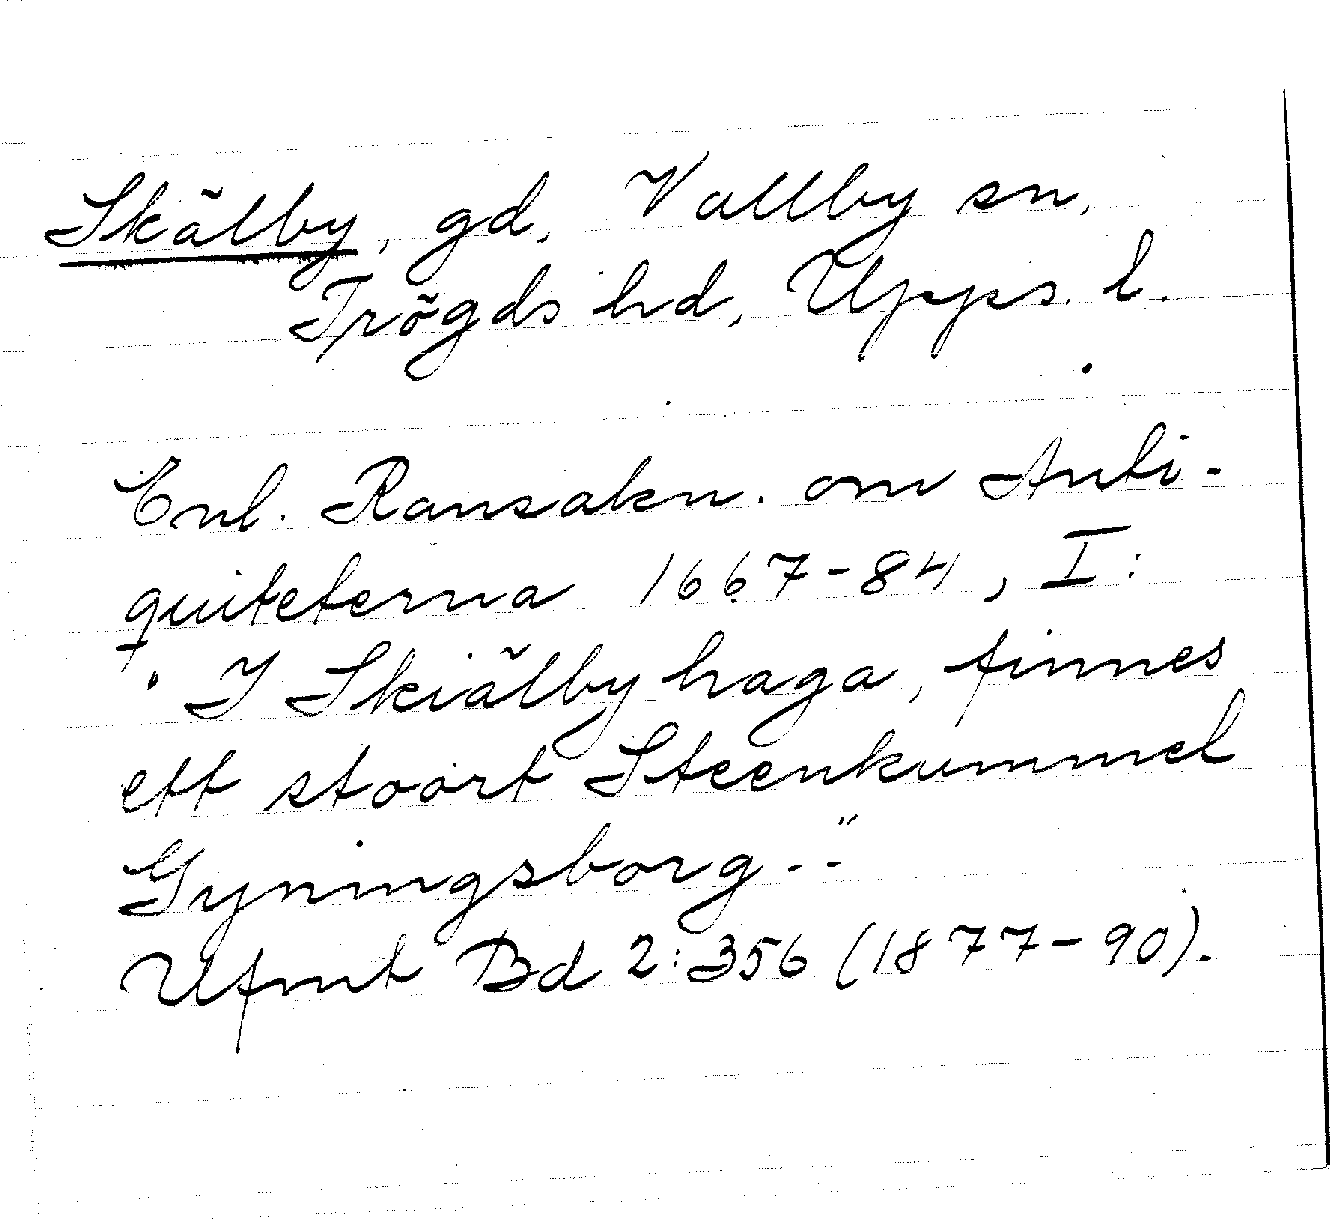 Skälby, gd, Vallby sn,
Trögds hd, Upps. l.
Enl. Ransakn. om Anti-
quiteterna 1667-84, I:
" I Skiälby haga, finnes
ett stoort Steenkummel
Gyningsborg.-"
Ufmt Bd 2:356 (1877-90).